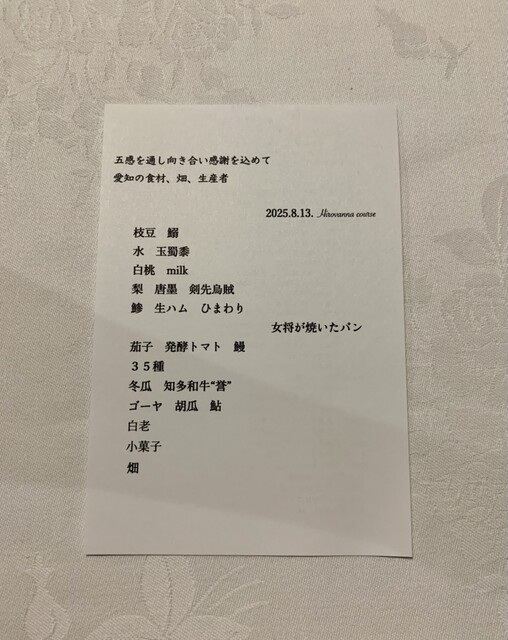 五感を通し向き合い感謝を込めて
愛知の食材、畑、生産者
2025.8.13. Hirovanna course
枝豆　鰯
水　玉蜀黍
白桃　milk
梨　唐墨　剣先烏賊
鯵　生ハム　ひまわり
女将が焼いたパン
茄子　発酵トマト　鰻
３５種
冬瓜　知多和牛“誉”
ゴーヤ　胡瓜　鮎
白老
小菓子
畑